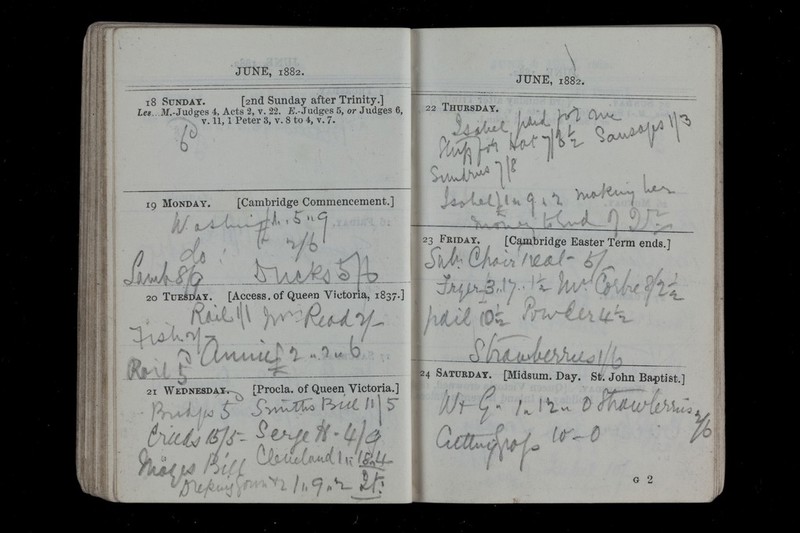 JUNE, 1882.
18 SUNDAY. [2nd Sunday after Trinity.]
Les. M.-Judges 4, Acts 2, v. 22. E.-Judges 5, or Judges 6,
v. 11, 1 Peter 3, v. 8 to 4, v. 7.
19 MONDAY. [Cambridge Commencement.]
5 " 9
do 2/6
Lamb 8/9 Ducks 5/6
20 TUESDAY. [Access. of Queen Victoria, 1837.]
Rail 1/1 Mrs Read 2/-
Fish 2/-
Annie £2 " 2 " 6
Rail 5
21 WEDNESDAY. [Procla. of Queen Victoria.]
5 Smiths Bill 11/5
Creeds 15/5- Serge 4/9
Bill Cleveland 1 " 18 " 4
1 " 9 " 2
JUNE, 1882.
22 THURSDAY.
Isabel paid for me
for Hat 7/8½ Sausages 1/3
Sundries 7/8
Isabel 1 " 9 " 2 making her
money
23 FRIDAY. [Cambridge Easter Term ends.]
Chair 5/
Fryer 3 " 17 " 1½ Mrs Corbe 8/2½
pail 10½ Powder 4½
Strawberries 1/6
24 SATURDAY. [Midsum. Day. St. John Baptist.]
1 " 12 " 0 Strawberries 2/6
Cutting 10-0
G 2